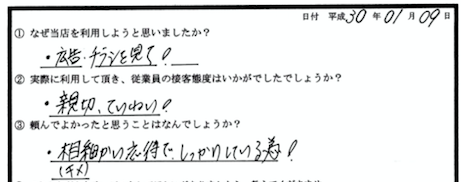 日付 平成30年01月09日
① なぜ当店を利用しようと思いましたか？
・広告・チラシを見て！
② 実際に利用して頂き、従業員の接客態度はいかがでしたでしょうか？
・親切、ていねい！
③ 頼んでよかったと思うことはなんでしょうか？
・相細かい応待でしっかりしている為！
(キメ)